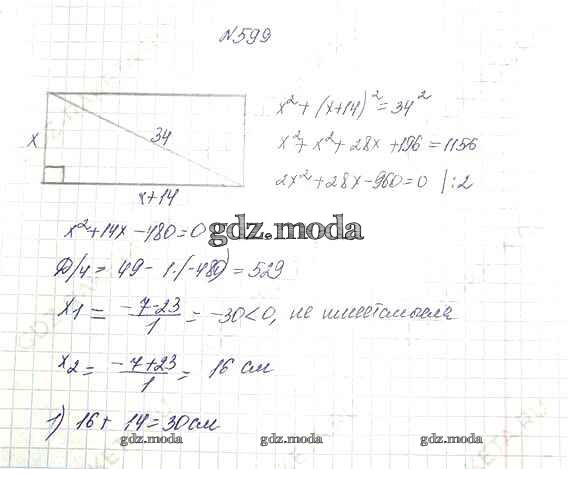 №599
x² + (x+14)² = 34²
x
34
x² + x² + 28x + 196 = 1156
2x² + 28x - 960 = 0 |:2
x+14
x² + 14x - 480 = 0
gdz.moda
D/4 = 49 - 1·(-480) = 529
x1 = -7-23/1 = -30 < 0, не имеет смысла
x2 = -7+23/1 = 16 см
1) 16 + 14 = 30 см
gdz.moda gdz.moda gdz.moda